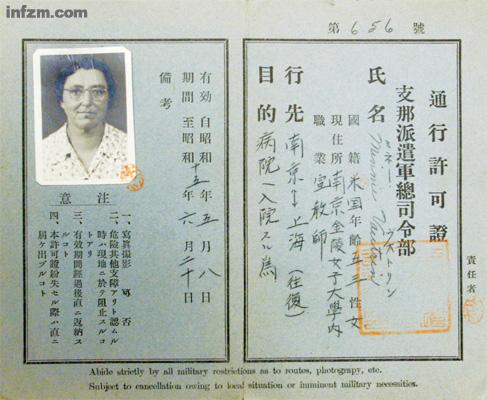 infzm.com
第656號
通行許可證
支那派遣軍總司令部
氏名 Minnie Vautrin
ミネー ヴォートリン
國籍 米国 年齢 五三 性 女
現住所 南京金陵女子大學内
職業 宣教師
行先 南京ヨリ上海(往復)
目的 病院ヘ入院スル為
責任者
有効 自昭和十五年五月八日
期間 至昭和 年六月二十日
備考
注意
一、寫眞撮影 否
二、危險其他支障アリト認ムル
時ハ現地ニ於テ阻止スルコ
トアリ
三、有效期間經過後直ニ返納ス
ルコト
四、本許可證紛失セル際ハ直ニ
屆ケ出ヅルコト
Abide strictly by all military restrictions as to routes, photograpy, etc.
Subject to cancellation owing to local situation or imminent military necessities.